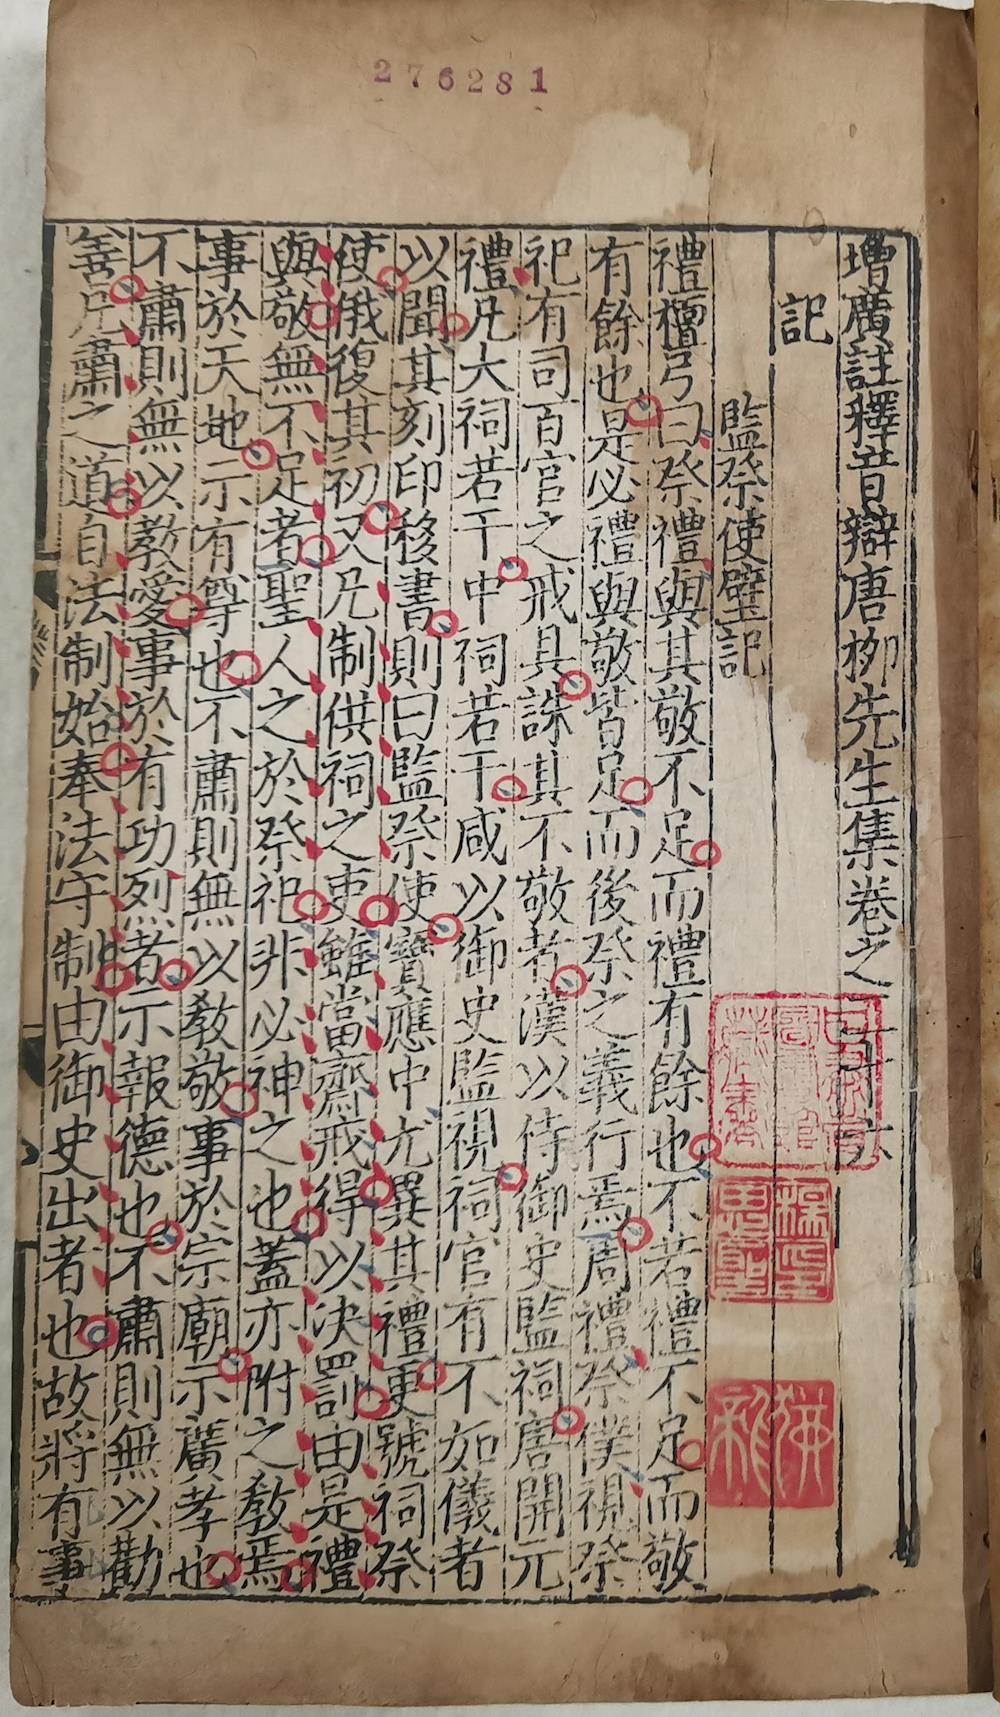 276281
增廣註釋音辯唐柳先生集卷之二十六
記
監祭使壁記
禮檀弓曰祭禮與其敬不足而禮有餘也不若禮不足而敬
有餘也是必禮與敬皆足而後祭之義行焉周禮祭僕視祭
祀有司百官之戒具誅其不敬者漢以侍御史監祠唐開元
禮凡大祠若干中祠若干咸以御史監視祠官有不如儀者
以聞其刻印移書則曰監祭使寶應中尤異其禮更號祠祭
使俄復其初又凡制供祠之吏雖當齋戒得以決罰由是禮
與敬無不足者聖人之於祭祀非必神之也蓋亦附之教焉
事於天地示有尊也不肅則無以教敬事於宗廟示廣孝也
不肅則無以教愛事於有功烈者示報德也不肅則無以勸
善凡肅之道自法制始奉法守制由御史出者也故將有事